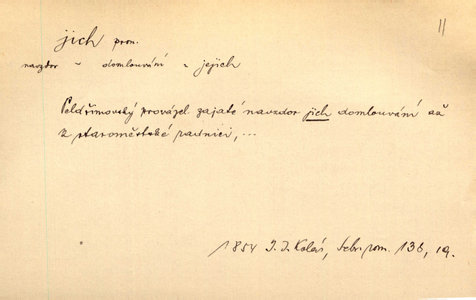 11
jich pron.
navzdor ~ domlouvání = jejich
Peldřimovský provázel zajaté navzdor jich domlouvání až
k staroměstské radnici, ...
1854 J. J. Kolár, Sebr. rom. 136, 19.